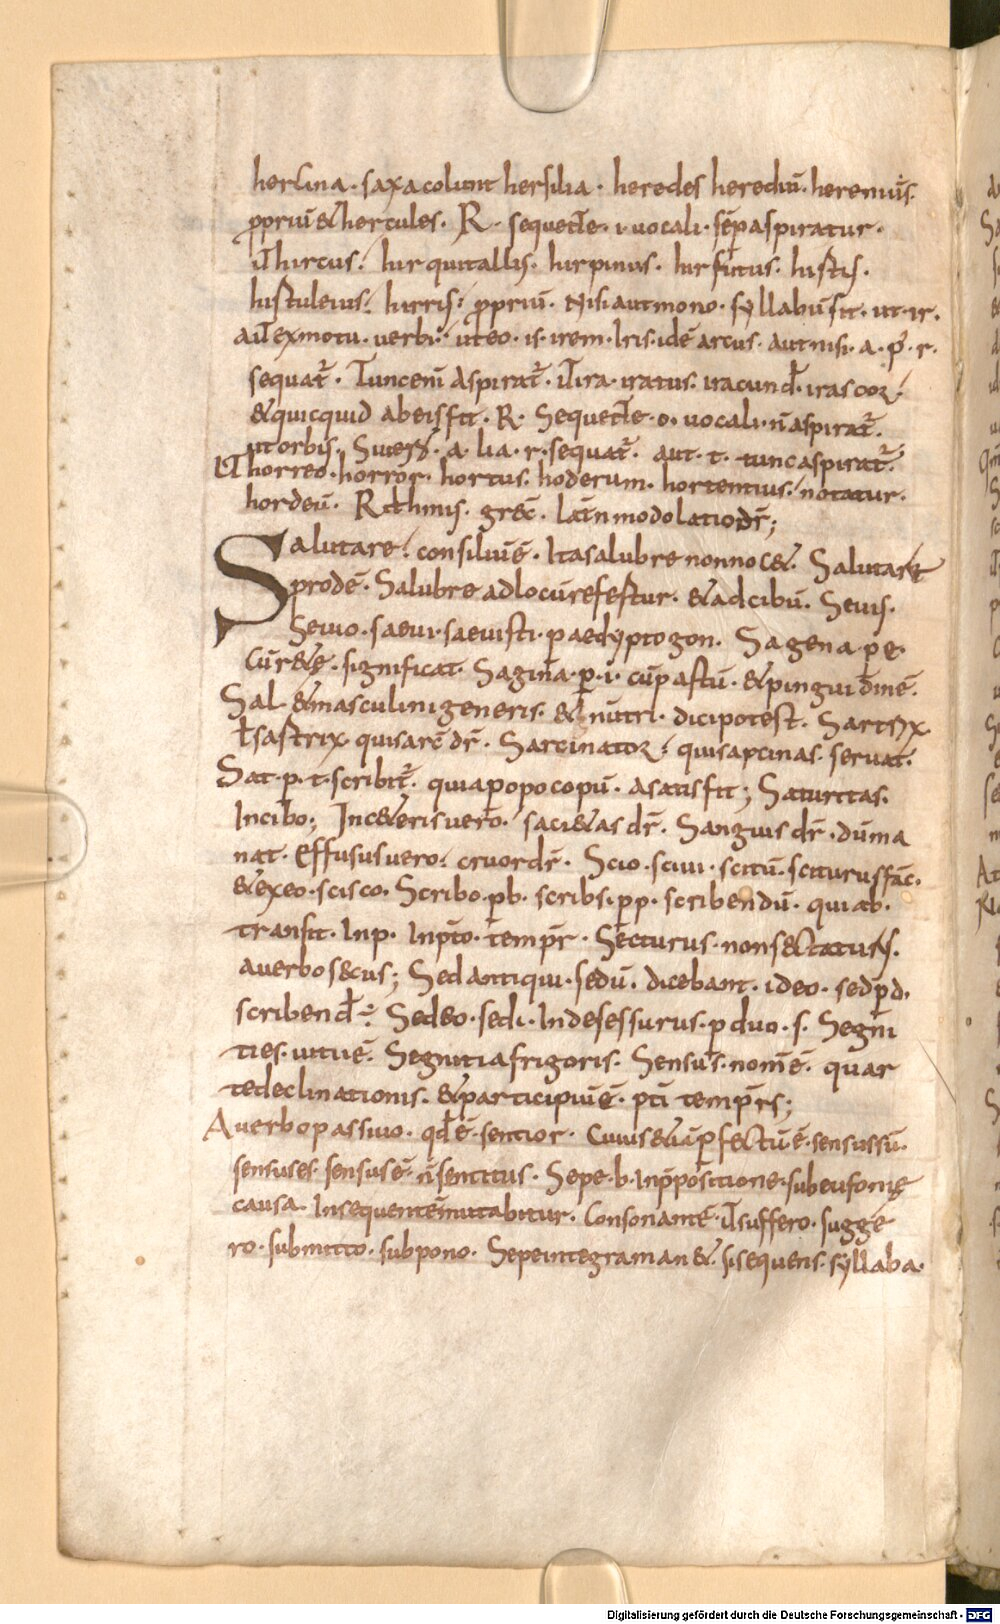 herlina. saxa colunt hersilia. heredes herediū. heremius.
ꝓpriū & hercules. R. sequente. i. uocali. sēp aspiratur.
ut hircus. hirquitallis. hirpinus. hirsutus. histis.
histuleius. hirris. ꝓpriū. Nisi aut mono. syllabū sit. ut. ir.
aut ex motu. uerbi. ut eo. is. irem. Iris. idē arcus. aut nisi. a. p̄. r.
sequat̄. Tunc enī aspirat̄. ut ira. iratus. iracund. irascor.
& quicquid ab eis fit. R. Sequente. o. uocali. n̄ aspirat̄.
ut orbis. Sute. a. ł ia. r. sequat̄. aut. t. tunc aspirat̄.
ut horreo. horror. hortus. hoderum. hortensius. notatur.
hordeū. Rithmis. grec̄. latin modolatio dr̄;
Salutare. consiliū ē. Ita salubre non noc&. Salutare
prode ē. Salubre ad locū refestur. & ad cibū. Seuis.
Seuio. saeui. saeuisti. p ae dyptogon. Sagena. p e.
significat. Sagina. p̄. i. cūpastū. & pinguidine ē.
Sal & masculini generis. & nūtri. dici potest. Sartrix
ł sastrix. qui sarc̄ dr̄. Sarcinator. qui sarcinas. seruat.
Sat. p. t. scribit̄. quia p opocopū. a satis fit; Saturitas.
In cibo; In c&eris uero. saci&as dr̄. Sanguis dr̄. dū ma
nat. Effusus uero. cruor dr̄. Scio. sciui. scitū. sciturus fac̄.
& exeo. scisco. Scribo. p b. scribs. p p. scribendū. qui a b.
transit. In p. In p̄to. temp̄r. Secturus. non s&taturus.
a uerbo s&us; Sed antiqui. sedū. dicebant. ideo. sed p d.
scribend. Sedeo. sedi. Inde sessurus. p duo. s. Segni
ties. uitiū ē. Segnitia frigoris. Sensus. nom̄ ē. quar
te declinationis. & participiū ē. pti temp̄rs;
A uerbo passiuo. qd ē. sentior. Cuius & perfectū ē. sensus sū.
sensus es. sensus ē. n̄ sentitus. Sepe. b. In p̄positione. sub eufonie
causa. In sequentē mutabitur. Consonantē. ut suffero. sugge
ro. submitto. subpono. Sepe integra man&. si sequens. syllaba.
Digitalisierung gefördert durch die Deutsche Forschungsgemeinschaft - DFG